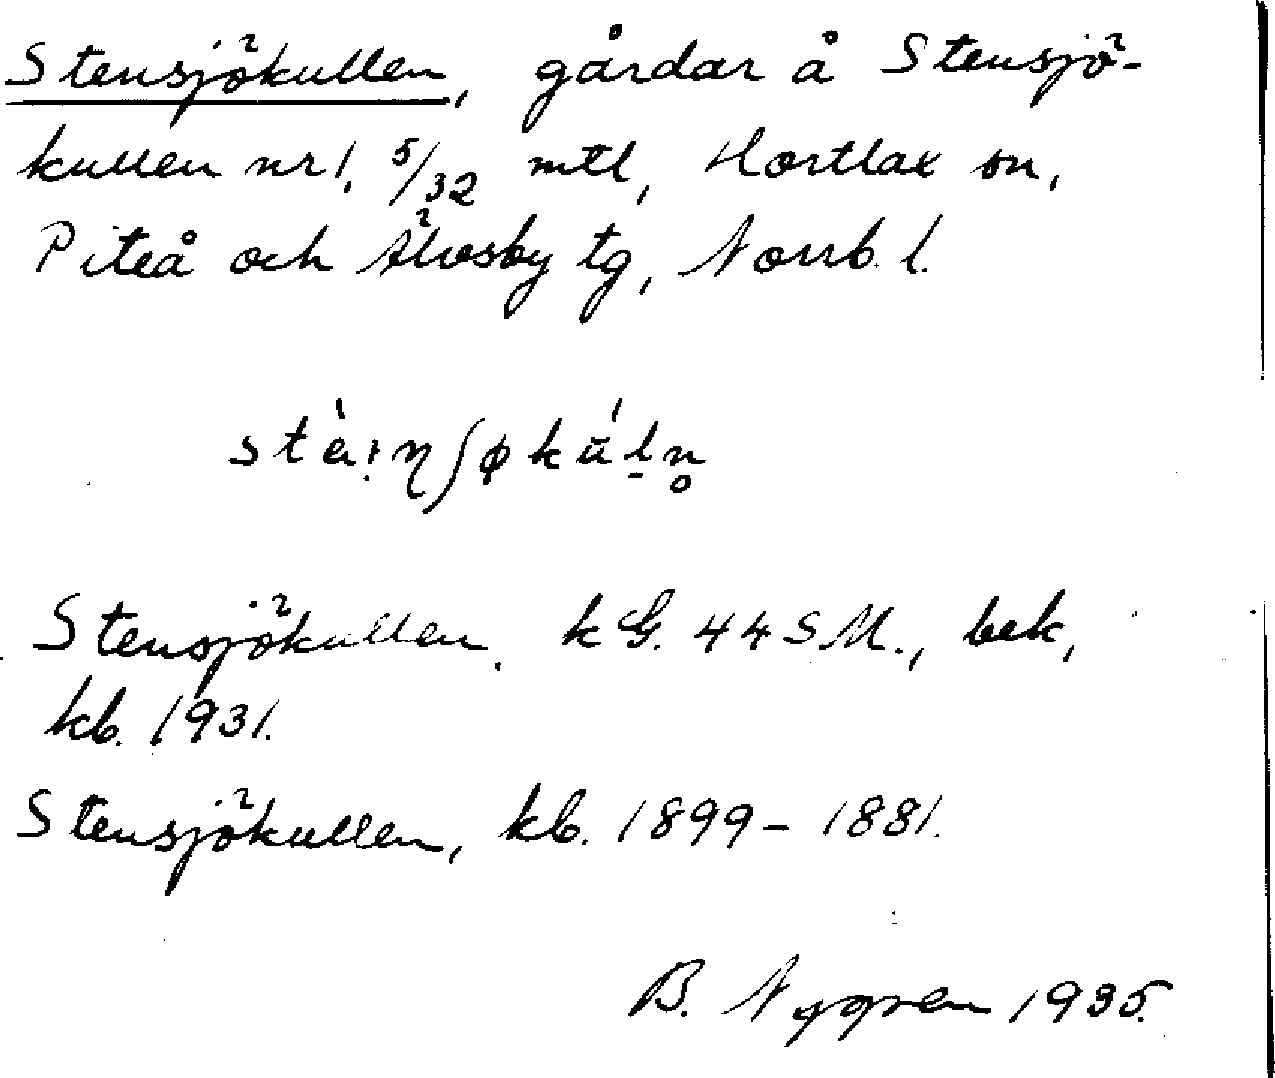 Stensjökullen, gårdar å Stensjö-
kullen nr 1, 5/32 mtl, Hortlax sn,
Piteå och Älvsby tg, Norrb. l.
Stensjökullen, kG. 44 SM., bek,
kb. 1931.
Stensjökullen, kb. 1899-1881.
B. Nygren 1935.